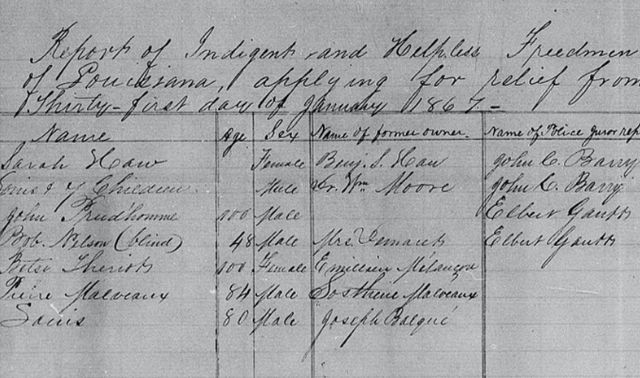 Report of Indigent and Helpless Freedmen
of Louisiana, applying for relief from
Thirty-first day of January 1867-
Name Age Sex Name of former owner. Name of Police Juror rep
Sarah Haw Female Benj. S. Haw John C. Barry
& 7 Children Male Dr. Wm Moore John C. Barry
John Prudhomme 100 Male Elbert Gantt
Bob. Nelson (blind) 48 Male Mrs. Elbert Gantt
Betsy Theriott 100 Female Emilien Melançon
Pierre Malveaux 84 Male Sosthene Malveaux
80 Male Joseph